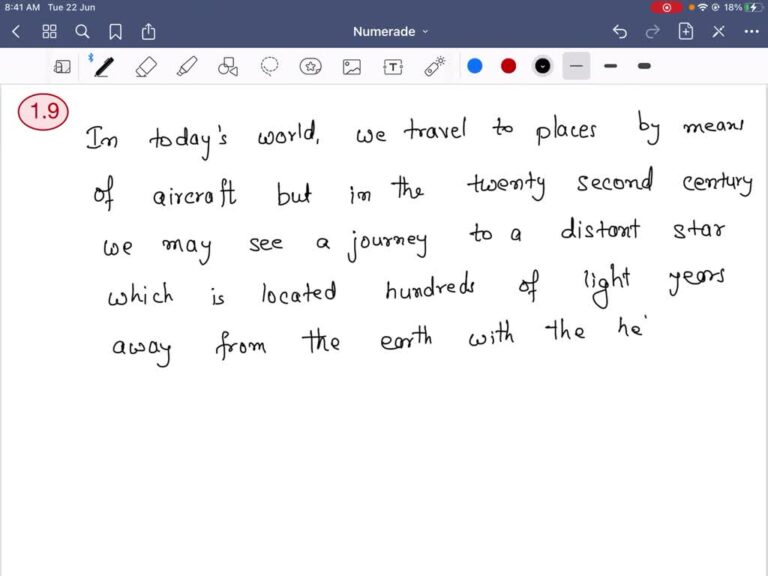 8:41 AM Tue 22 Jun
18%
Numerade
1.9
In today's world, we travel to places by means
of aircraft but in the twenty second century
we may see a journey to a distant star
which is located hundreds of light years
away from the earth with the he